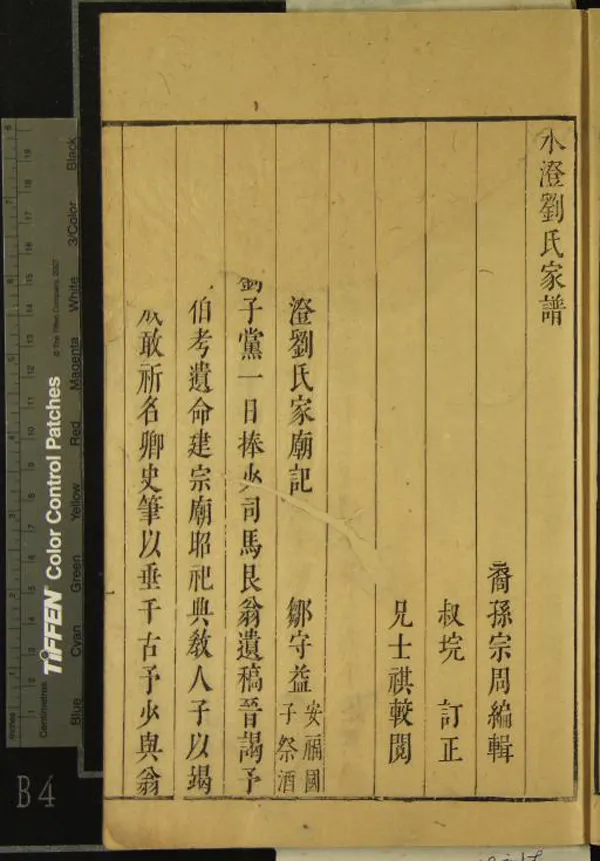 水澄劉氏家譜
裔孫宗周編輯
叔垸 訂正
兄士祺較閱
澄劉氏家廟記 鄒守益 安福國子祭酒
劉子黨一日捧少司馬艮翁遺稿晉謁予
伯考遺命建宗廟昭祀典敎人子以竭
敢祈名卿史筆以垂千古予少與翁
TIFFEN Color Control Patches
© The Tiffen Company, 2007
Inches
Centimetres
Blue Cyan Green Yellow Red Magenta White 3/Color Black
B4